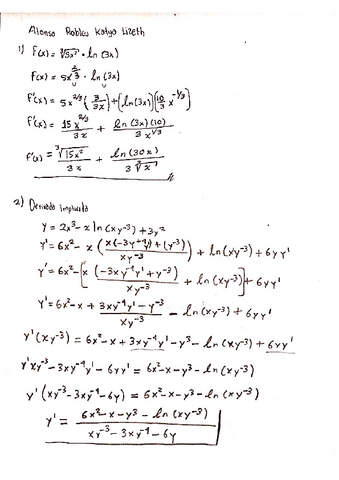 Alonso Robles Katya Lizeth
1) F(x) = ∛5x² · ln (3x)
F(x) = 5x^(2/3) · ln (3x)
F'(x) = 5x^(2/3) (3/3x) + (ln(3x)) (10/3 x^(-1/3))
F'(x) = 15x^(2/3)/3x + ln(3x)(10)/3x^(1/3)
F'(x) = ∛15x²/3x + ln(30x)/3∛x
2) Derivada implícita
y = 2x³ - x ln(xy⁻³) + 3y²
y' = 6x² - x (x(-3y⁻⁴y') + (y⁻³)/xy⁻³) + ln(xy⁻³) + 6yy'
y' = 6x² - [x (-3xy⁻⁴y' + y⁻³)/xy⁻³ + ln(xy⁻³)] + 6yy'
y' = 6x² - x + 3xy⁻⁴y' - y⁻³/xy⁻³ - ln(xy⁻³) + 6yy'
y'(xy⁻³) = 6x² - x + 3xy⁻⁴y' - y⁻³ - ln(xy⁻³) + 6yy'
y'xy⁻³ - 3xy⁻⁴y' - 6yy' = 6x² - x - y⁻³ - ln(xy⁻³)
y'(xy⁻³ - 3xy⁻⁴ - 6y) = 6x² - x - y⁻³ - ln(xy⁻³)
y' = 6x² - x - y⁻³ - ln(xy⁻³)/xy⁻³ - 3xy⁻⁴ - 6y